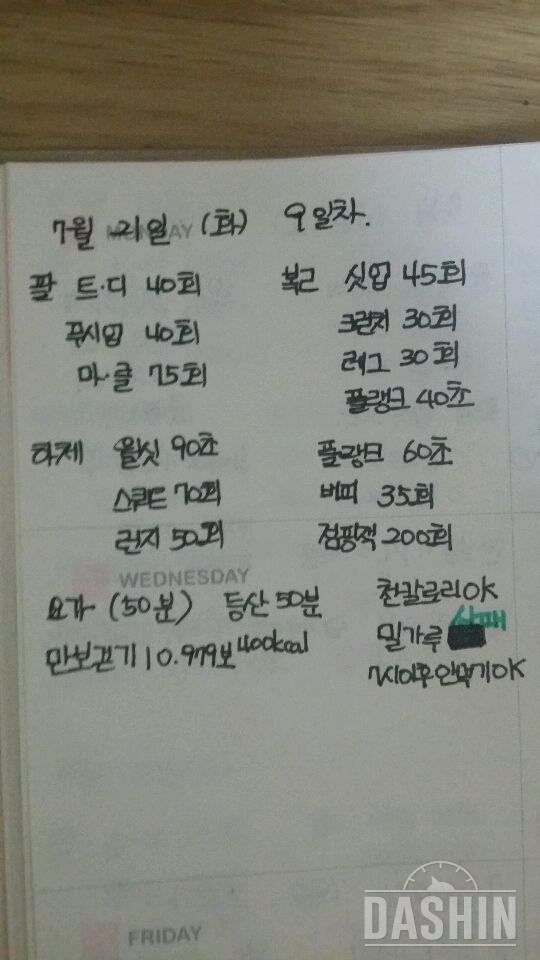 MONDAY
7월 21일 (화) 9일차.
팔 트·디 40회
푸시업 40회
마·클 75회
복근 싯업 45회
크런치 30회
레그 30회
플랭크 40초
하체 월싯 90초
스쿼트 70회
런지 50회
플랭크 60초
버피 35회
점핑잭 200회
WEDNESDAY
요가 (50분) 등산 50분
만보걷기 10.979보 400kcal
천칼로리OK
밀가루 실패
7시이후안먹기OK
FRIDAY
DASHIN